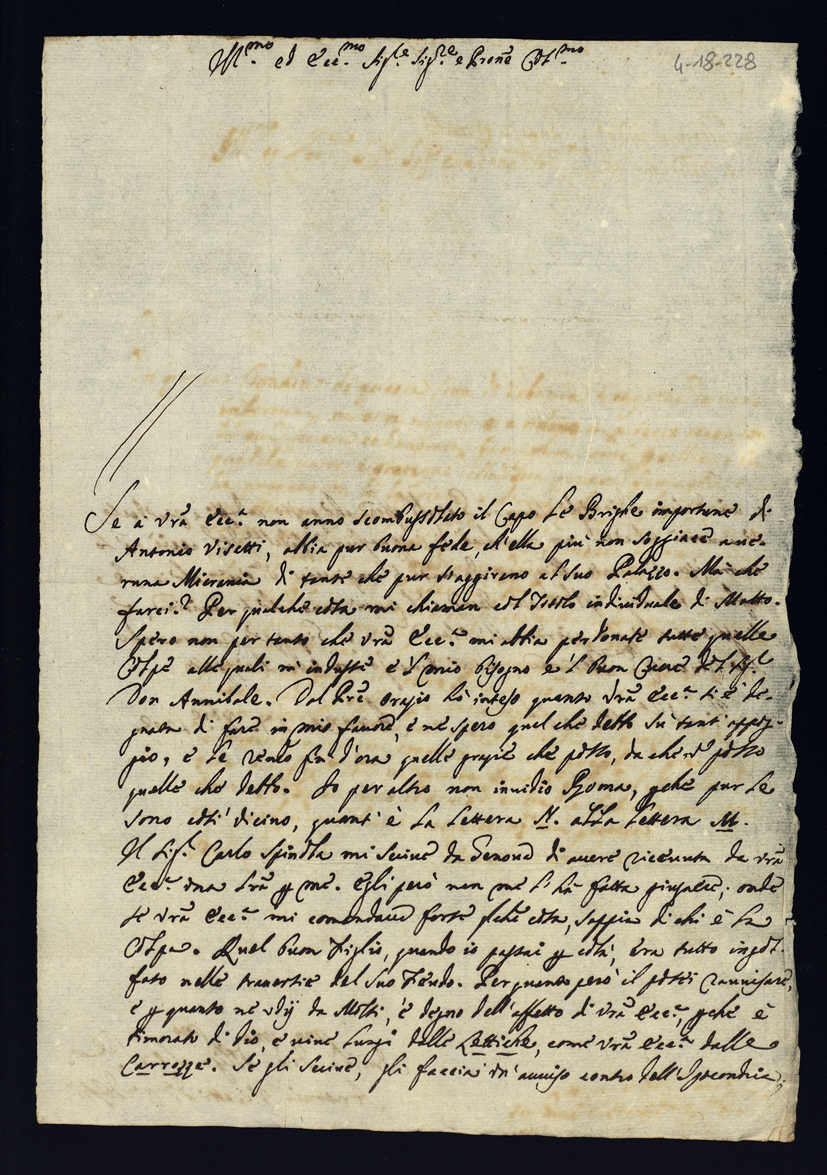 Ill.mo ed Ecc.mo Sig.re Sig.re e Prone Col.mo
4-18-228
Se à Vrã Ecc.a non anno scombussolato il Capo le Brighe importune di
Antonio Visetti, abbia pur buona fede, ch'ella più non soggiace a ve-
runa Micrania di tante che pur s'aggirano al suo Palazzo. Mà che
farci? Per qualche cosa mi chiaman col Titolo individuale di Matto.
Spero non per tanto che Vrã Ecc.a mi abbia perdonate tutte quelle
Colpe alle quali m'indusse e 'l mio bisogno e 'l buon Cuore del Sig.r
Don Annibale. Dal Pre Orazio hò inteso quanto Vrã Ecc.a si è de-
gnata di fare in mio favore, e ne spero quel che debbo sù tant'appog-
gio, e le rendo fin d'ora quelle grazie che posso, da che nõ posso
quelle che debbo. Io per altro non invidio Roma, pchè pur le
sono così vicino, quant'è la lettera N. alla lettera M.
Il Sig.r Carlo Spinola mi scrive da Genova di avere ricevuta da Vrã
Ecc.a una Lrã p me. Egli però non me l'hà fatta giugnere; onde
se Vrã Ecc.a mi comandava forse qlche cosa, sappia di chi è la
Colpa. Quel buon Figlio, quando io passai p colà, era tutto ingol-
fato nelle traversie del suo Feudo. Per quanto però il potei ravvisare,
e p quanto ne udij da Molti, è degno dell'affetto di Vrã Ecc.a, pchè è
timorato di Dio, e vive lungi dalle Lettiche, come Vrã Ecc.a dalle
Carrozze. Se gli scrive, gli faccia un avviso contro dell'Ipocondria,